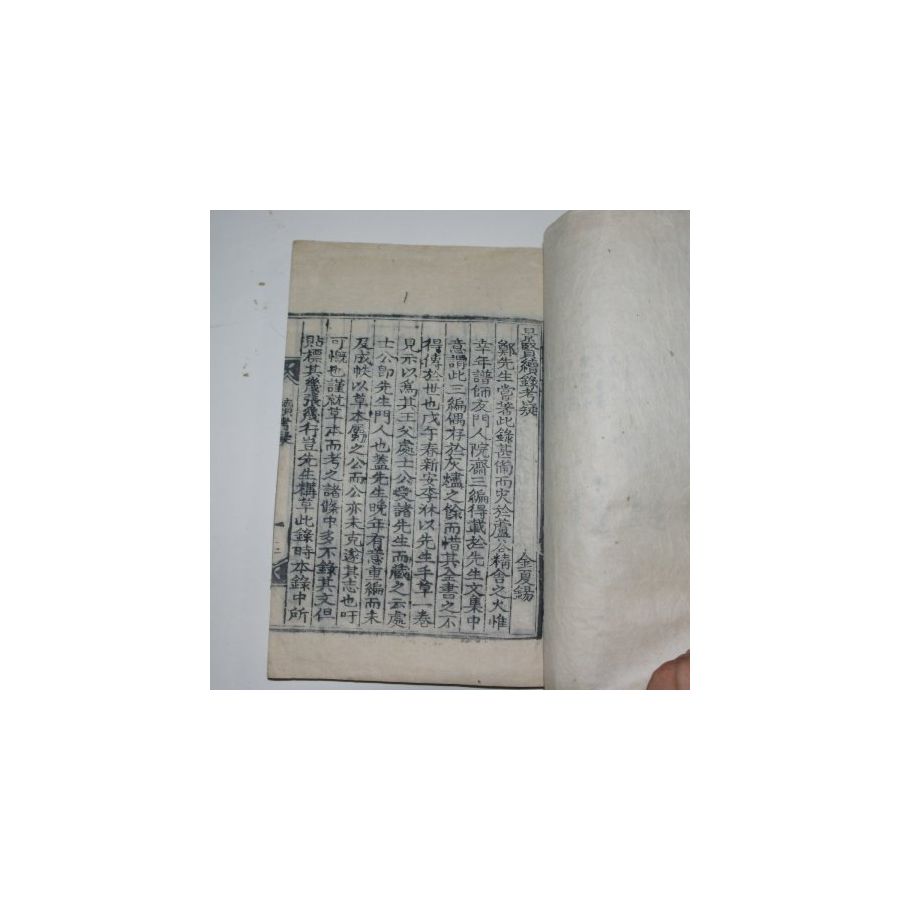 景賢續錄考疑
金夏錫
鄭先生嘗著此錄甚備而失於蘆谷精舍之火惟
年譜師友門人院齋三編得載於先生文集中
意謂此三編偶存於灰燼之餘而惜其全書之不
得傳於世也戊午春新安李 以先生手草一卷
見示以爲其王父處士公受諸先生而藏之云處
士公卽先生門人也蓋先生晚年有意重編而未
及成帙以草本屬之公而公亦未克遂其志也吁
可慨也謹就草本而考之諸條中多不錄其文但
貼標其幾張幾行豈先生構草此錄時本錄中所
續考疑